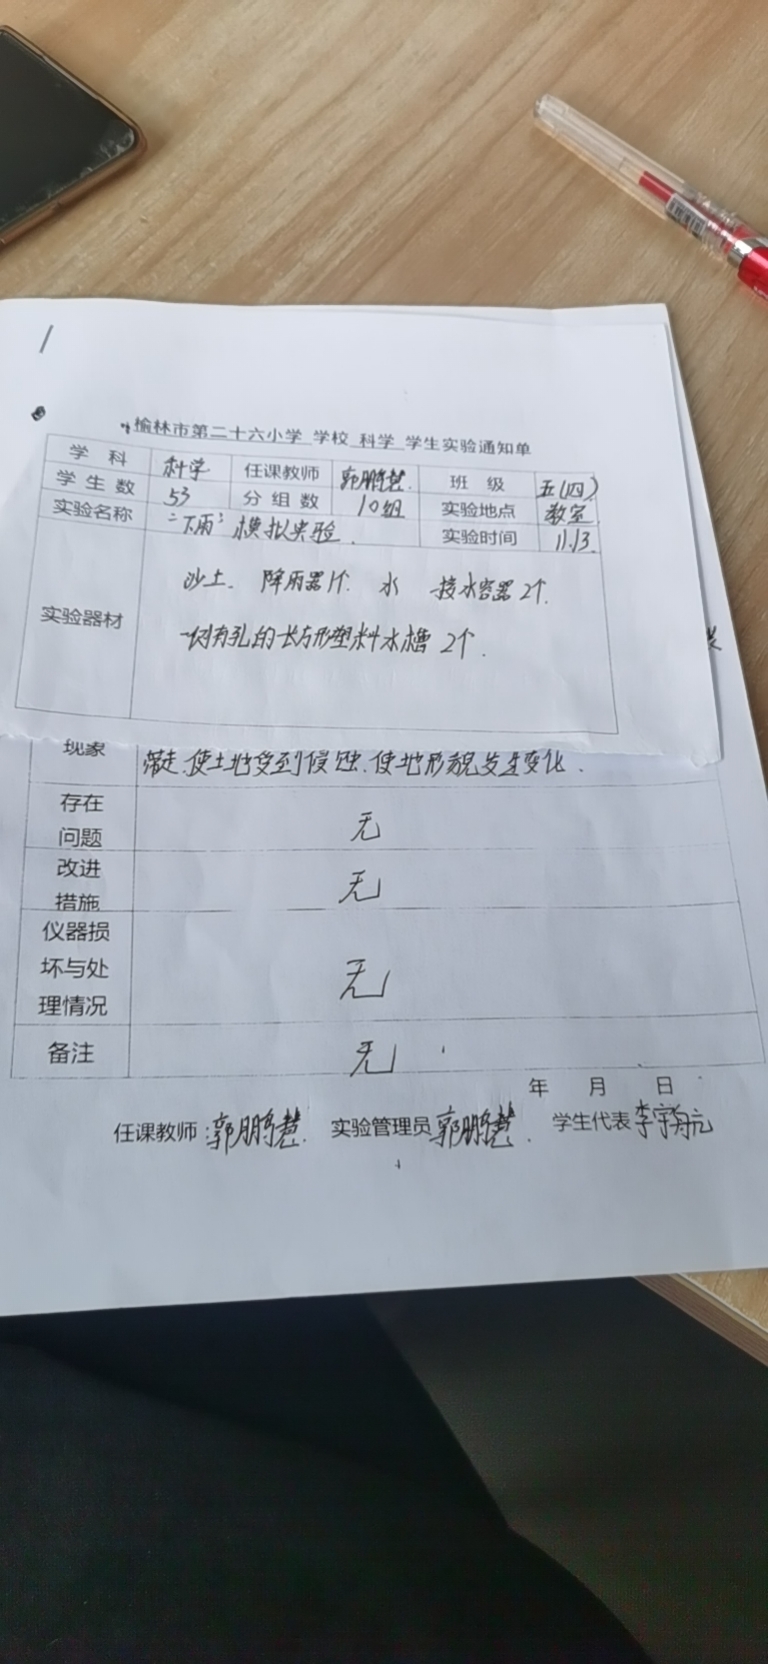 榆林市第二十六小学 学校 科学 学生实验通知单
学科 科学 任课教师 郭鹏慧 班级 五(四)
学生数 53 分组数 10组 实验地点 教室
实验名称 “下雨”模拟实验. 实验时间 11.13
实验器材 沙土. 降雨器1个. 水 接水容器2个.
一侧有孔的长方形塑料水槽2个.
现象 带走.使土地受到侵蚀.使地形貌发生变化.
存在
问题 无
改进
措施 无
仪器损
坏与处 无
理情况
备注 无
年 月 日
任课教师:郭鹏慧. 实验管理员 郭鹏慧. 学生代表 李宇